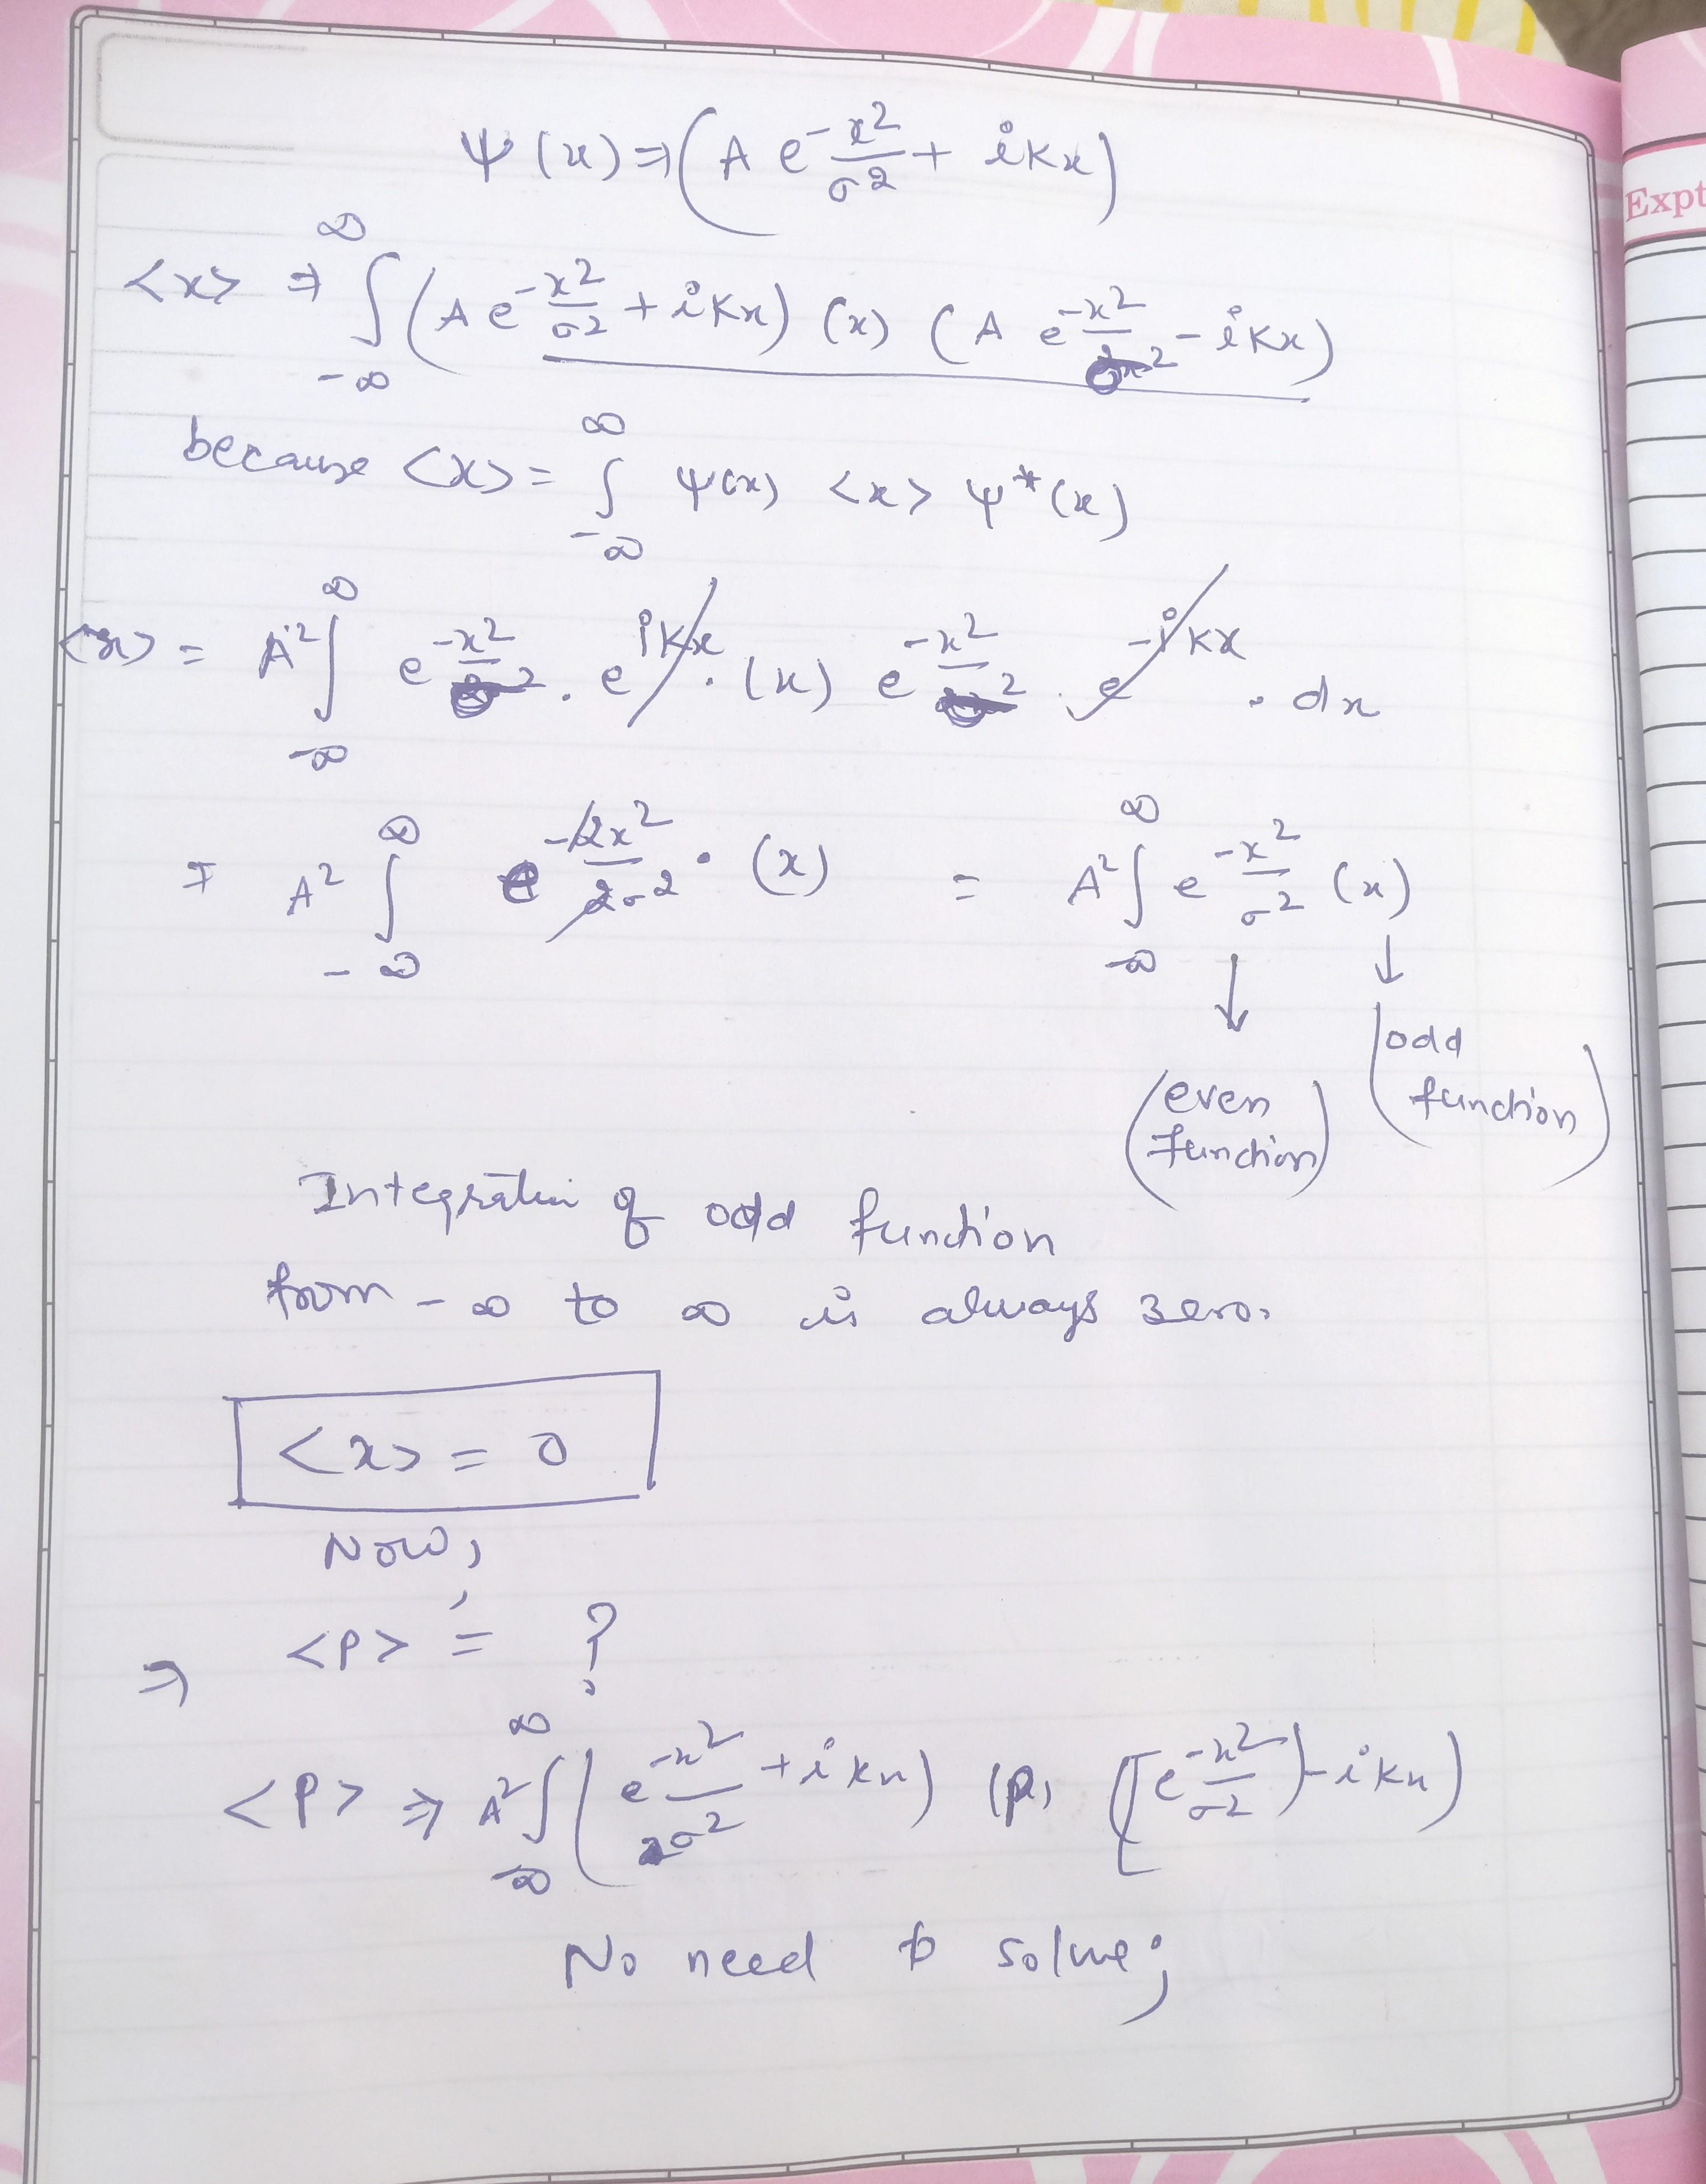 Expt
ψ(x) ⇒ (A e^{-x²/σ²} + ikx)
<x> ⇒ ∫_{-∞}^{∞} (A e^{-x²/σ²} + ikx) (x) (A e^{-x²/σ²} - ikx)
because <x> = ∫_{-∞}^{∞} ψ(x) <x> ψ*(x)
<x> = A² ∫_{-∞}^{∞} e^{-x²/σ²} . e^{ikx} . (x) e^{-x²/σ²} . e^{-ikx} . dx
= A² ∫_{-∞}^{∞} e^{-2x²/2σ²} . (x) = A² ∫_{-∞}^{∞} e^{-x²/σ²} (x)
↓ ↓
(even function) (odd function)
Integration of odd function
from -∞ to ∞ is always zero.
<x> = 0
Now,
⇒ <p> = ?
<p> ⇒ A² ∫_{-∞}^{∞} (e^{-x²/2σ²} + ikx) (p) [(e^{-x²/σ²}) - ikx)
No need to solve;